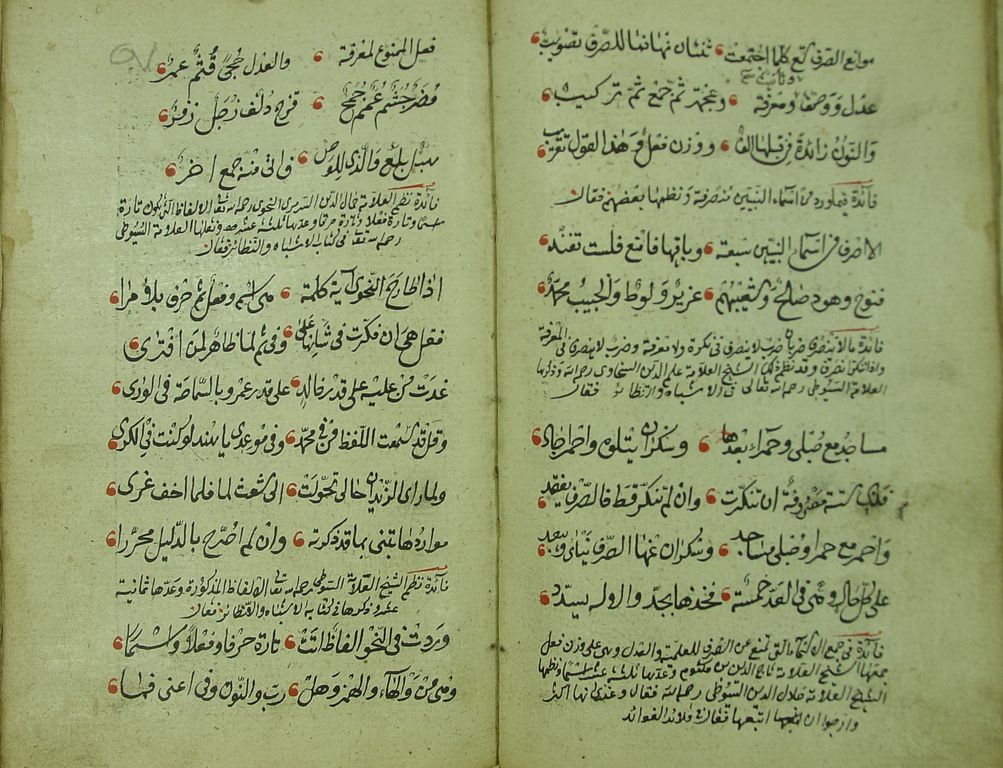 موانع الصرف تسع كلما اجتمعت ثنتان منها فما للصرف تصويب
عدل ووصف وتأنيث ومعرفة وعجمة ثم جمع ثم تركيب
والنون زائدة من قبلها الف ووزن فعل وهذا القول تقريب
فائدة فيما ورد من اسماء النبيين منصرفة ونظمها بعضهم فقال
الا صرف في اسماء النبيين سبعة وباقيها فامنع فلست تفند
فنوح وهود صالح وشعيبهم عزير ولوط والحبيب محمد
فائدة ما لا ينصرف ضربان ضرب لا ينصرف في نكرة ولا معرفة وضرب لا ينصرف في المعرفة
واذا تنكر نصرف وقد نظم ذلك الشيخ العلامة علم الدين السخاوي رحمه الله وذكرها
العلامة السيوطي رحمه الله تعالى في الاشباه والنظائر فقال
مساجد مع حبلى وحمراء بعدها وسكران يتلوه واحمر جاء
فذي ستة مصروفة ان تنكرت وان لم تنكر قط فالصرف يفقد
على كل حال
فائدة في جميع الكلمات التي تمنع من الصرف للعلمية والعدل وهي على وزن فعل
جمعها الشيخ العلامة تاج الدين بن مكتوم وعدتها ثلثة عشر اسما ونظمها
الشيخ العلامة جلال الدين السيوطي رحمه الله فقال وعندي انها اكثر
وارجوا ان اتبعها فقال قلائد الفوائد
فعل الممنوع لمعرفة والعدل جحى قثم عمر
مضر جشم عصم جمح قزح دلف زحل زفر
هبل بلع والذي للوصف واتى منه جمع اخر
فائدة نظم العلامة جمال الدين السرمري النحوي رحمه الله تعالى الالفاظ التي تكون تارة
اسما وتارة فعلا وتارة حرفا وعدتها ثلثة عشر ونقلها العلامة السيوطي
رحمه الله تعالى في كتاب الاشباه والنظائر فقال
اذا طارح النحوي آية كلمة هي اسم وفعل ثم حرف بلا مرا
فقل هي ان فكرت في شانها على وفي ثم لما ظاهر لمن اقترى
غدت من عليه على قدر خالد على قدر عمرو بالسماحة في الورى
وقل قد سمعت اللفظ من في محمد وفي موعدي يا هند لو كنت في الكرى
ولما راى الزيدان حالي تحولت الى شعث لما فلما اخف عرى
مواردها تنبي بما قد ذكرته وان لم اصرح بالدليل محررا
فائدة نظم الشيخ العلامة السيوطي رحمه الله تعالى الالفاظ المذكورة وعدها ثمانية
عشر وذكرها في كتابه الاشباه والنظائر فقال
وردت في النحو الفاظ اتت تارة حرفا وفعلا واسما
وهي من والهاء والهمز وهل رب والنون وفي اعني فما